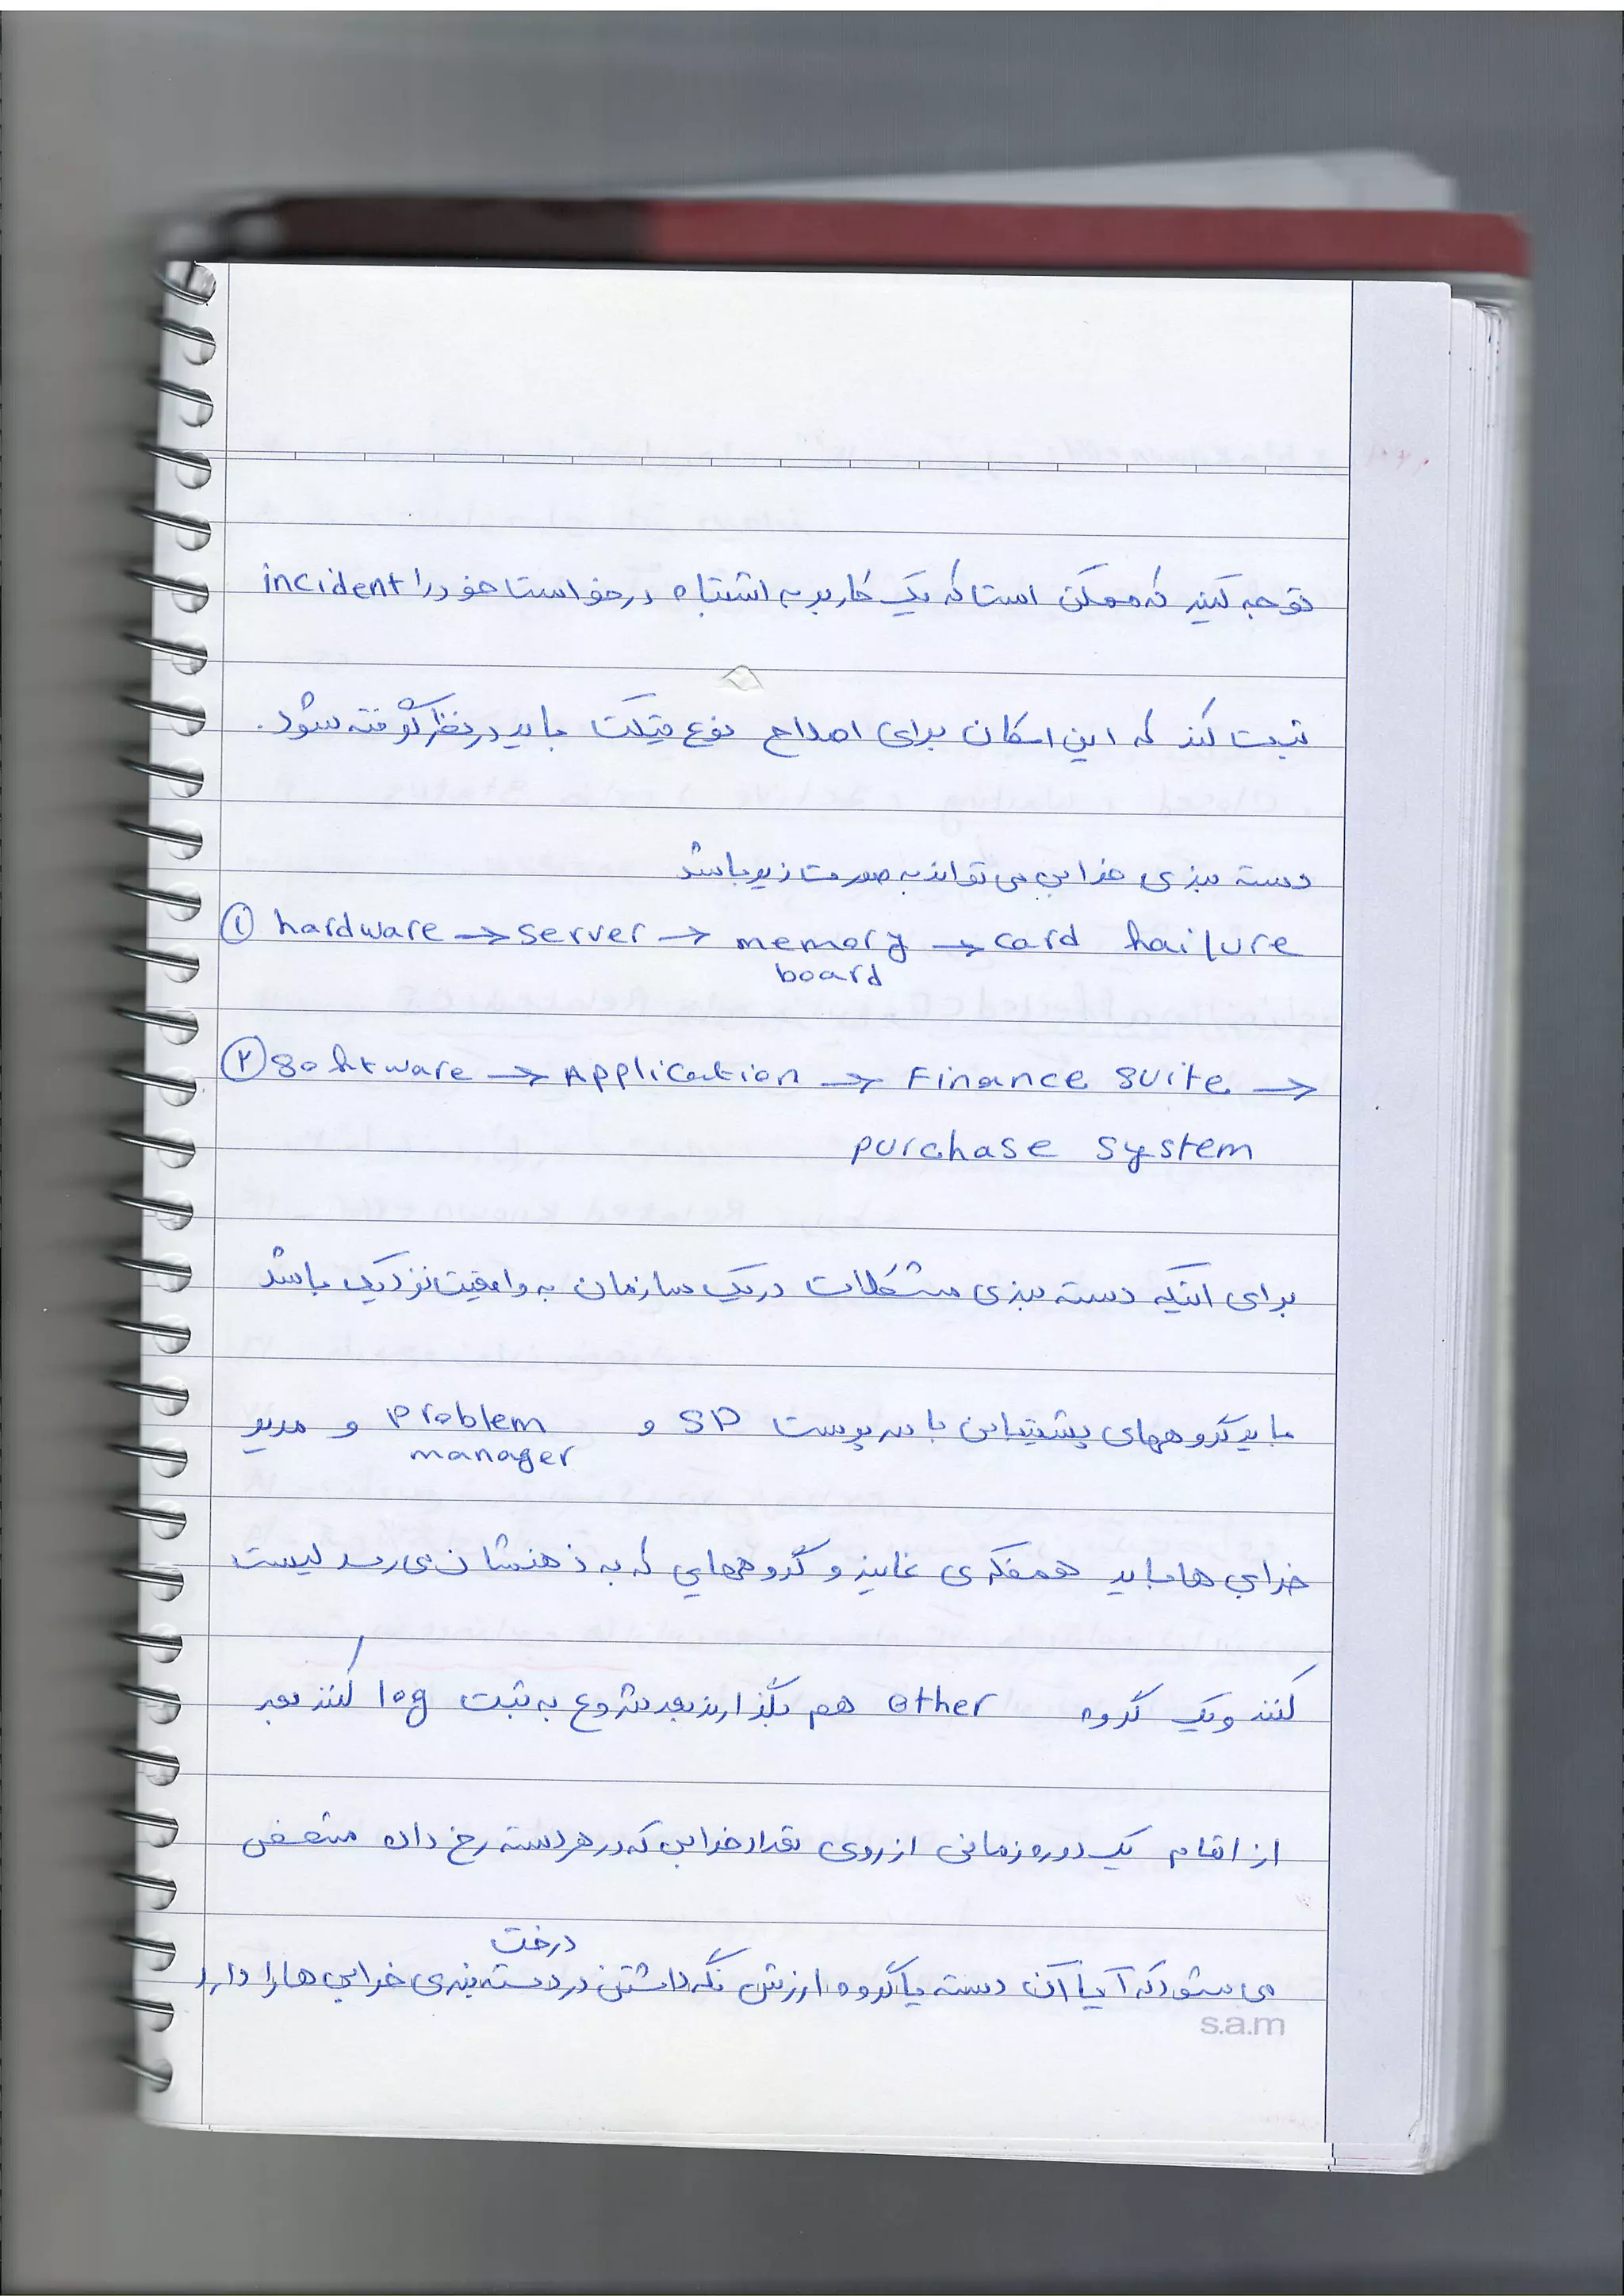 توجه کنید که ممکن است که یک کاربر به اشتباه درخواست خود را incident
ثبت کند که این امکان برای اصلاح نوع تیکت باید در نظر گرفته شود.
دسته بندی خرابی می تواند به صورت زیر باشد
① hardware → server → memory board → card hailure
② software → Application → Finance suite →
purchase system
برای اینکه دسته بندی مشکلات در یک سازمان به واقعیت نزدیک باشد
باید گروههای پشتیبانی با سرپرست SD و problem manager و مدیر
خرابی ها باید همفکری نمایند و گروههایی که به ذهنشان می رسد لیست
کنند و یک گروه other هم بگذارند بعد شروع به ثبت log کنند بعد
از اتمام یک دوره زمانی از روی تعداد خرابی که در هر دسته رخ داده مشخص
می شود که آیا آن دسته یا گروه ارزش نگه داشتن در درخت دسته بندی خرابی ها را دارد
s.a.m